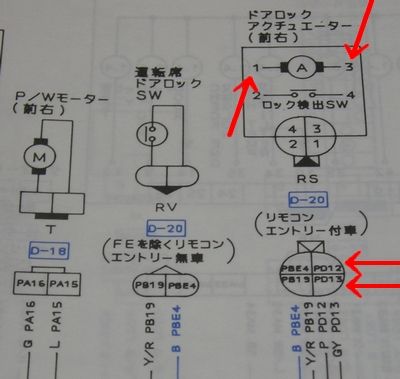 ドアロック
アクチュエーター
(前右)
1 A 3
2 4
ロック検出SW
4 3
2 1
RS
D-20
(リモコン
エントリー付車)
PBE4 PD12
PB19 PD13
Y/R PB19
B PBE4
P PD12
GY PD13
運転席
ドアロック
SW
RV
D-20
(FEを除くリモコン
エントリー無車)
PB19 PBE4
Y/R PB19
B PBE4
P/Wモーター
(前右)
M
T
D-18
PA16 PA15
G PA16
L PA15